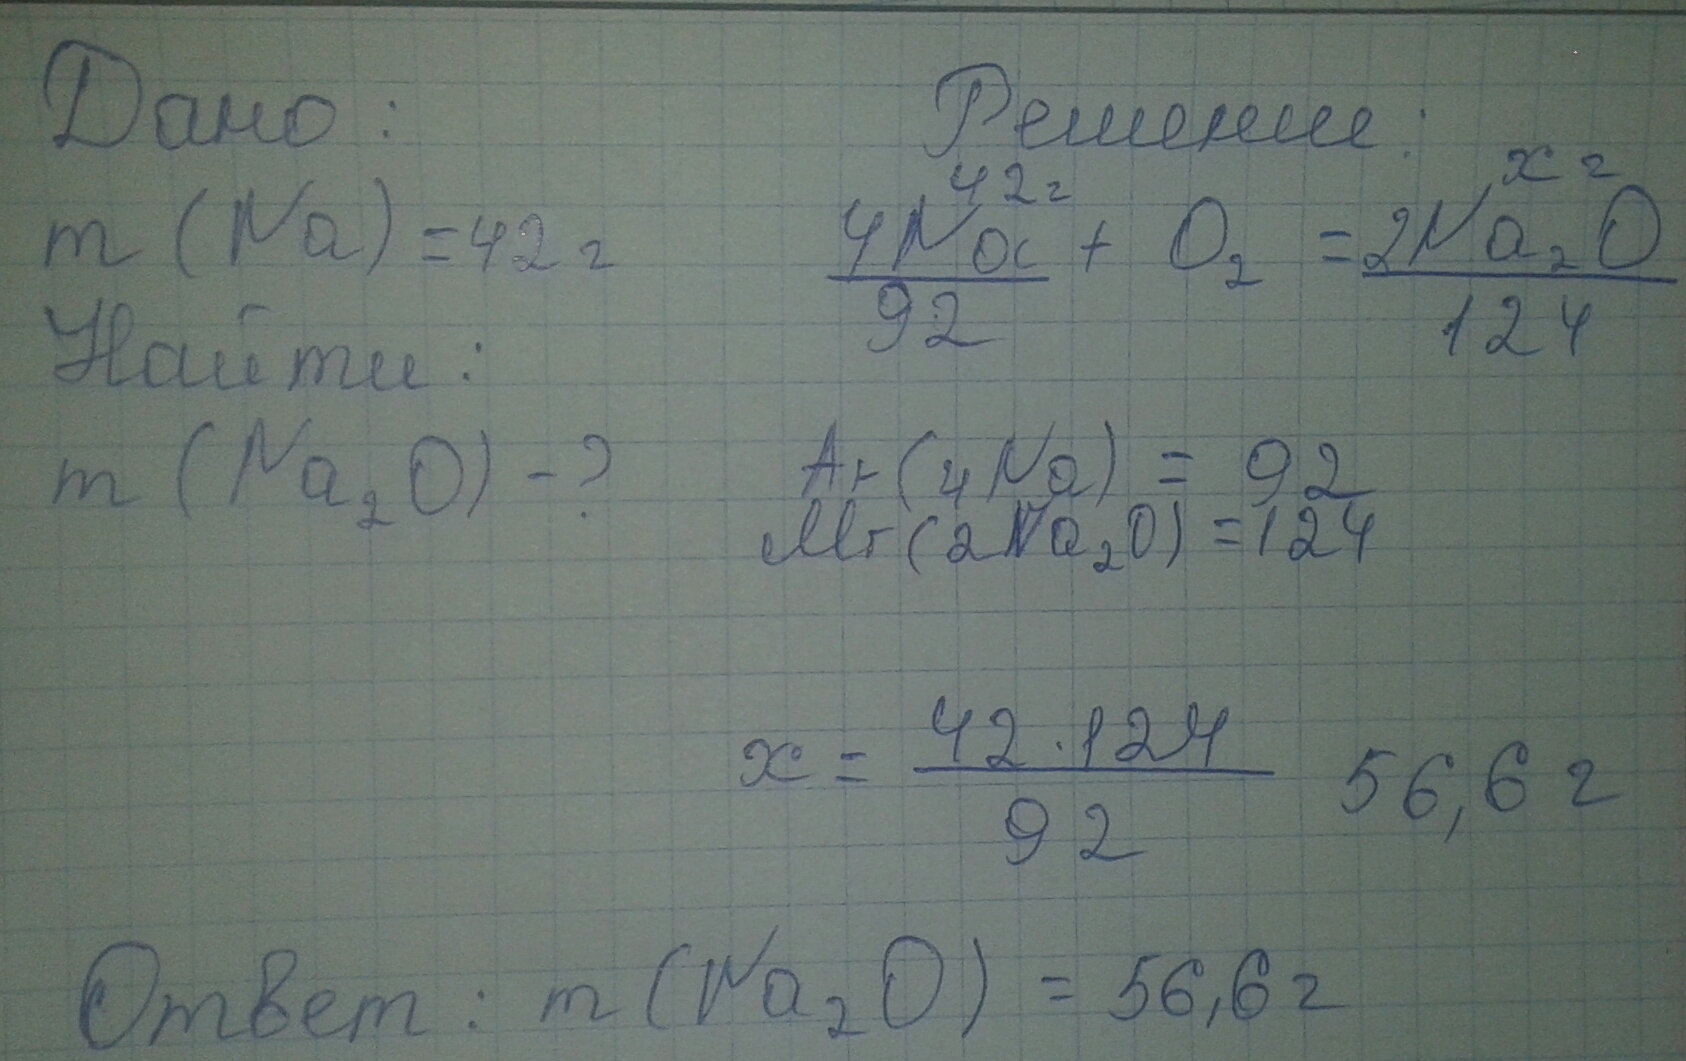 Дано:
m (Na) = 42 г
Найти:
m (Na₂O) - ?
Решение:
42 г x г
4Na + O₂ = 2Na₂O
92 124
Ar (4Na) = 92
Mr (2Na₂O) = 124
x = 42 · 124 56,6 г
92
Ответ: m (Na₂O) = 56,6 г